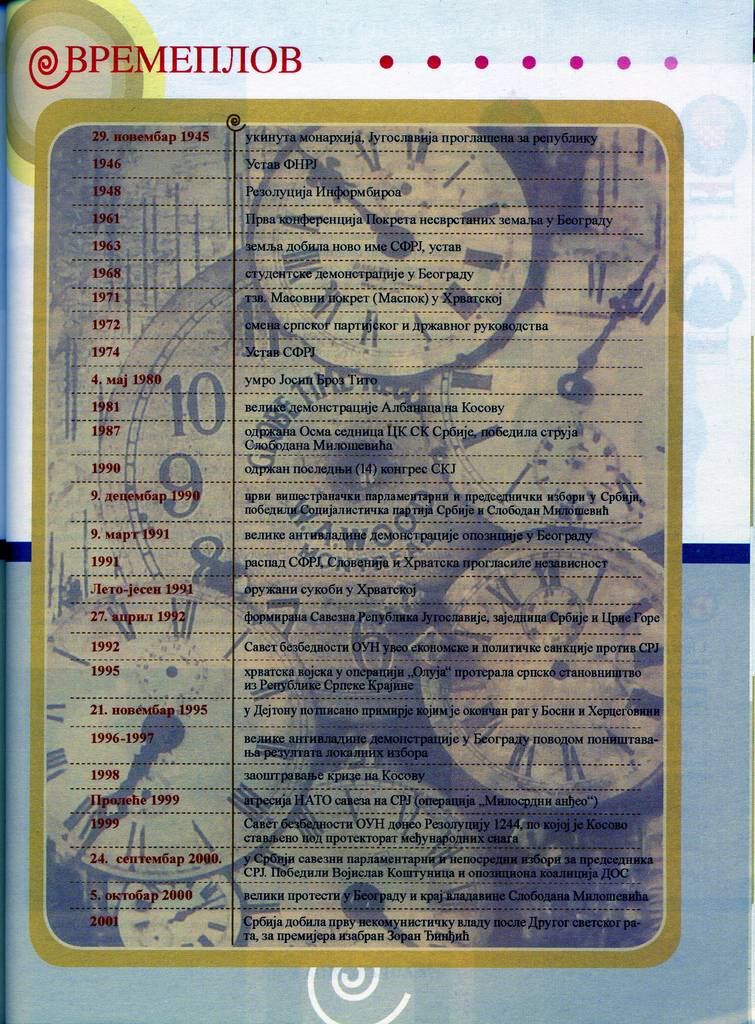 ВРЕМЕПЛОВ
29. новембар 1945 укинута монархија, Југославија проглашена за републику
1946 Устав ФНРЈ
1948 Резолуција Информбироа
1961 Прва конференција Покрета несврстаних земаља у Београду
1963 земља добила ново име СФРЈ, устав
1968 студентске демонстрације у Београду
1971 тзв. Масовни покрет (Маспок) у Хрватској
1972 смена српског партијског и државног руководства
1974 Устав СФРЈ
4. мај 1980 умро Јосип Броз Тито
1981 велике демонстрације Албанаца на Косову
1987 одржана Осма седница ЦК СК Србије, победила струја
Слободана Милошевића
1990 одржан последњи (14) конгрес СКЈ
9. децембар 1990 први вишестраначки парламентарни и председнички избори у Србији,
победили Социјалистичка партија Србије и Слободан Милошевић
9. март 1991 велике антивладине демонстрације опозиције у Београду
1991 распад СФРЈ, Словенија и Хрватска прогласиле независност
Лето-јесен 1991 оружани сукоби у Хрватској
27. април 1992 формирана Савезна Република Југославије, заједница Србије и Црне Горе
1992 Савет безбедности ОУН увео економске и политичке санкције против СРЈ
1995 хрватска војска у операцији „Олуја“ протерала српско становништво
из Републике Српске Крајине
21. новембар 1995 у Дејтону потписано примирје којим је окончан рат у Босни и Херцеговини
1996-1997 велике антивладине демонстрације у Београду поводом поништава-
ња резултата локалних избора
1998 заоштравање кризе на Косову
Пролеће 1999 агресија НАТО савеза на СРЈ (операција „Милосрдни анђео“)
1999 Савет безбедности ОУН донео Резолуцију 1244, по којој је Косово
стављено под протекторат међународних снага
24. септембар 2000. у Србији савезни парламентарни и непосредни избори за председника
СРЈ. Победили Војислав Коштуница и опозициона коалиција ДОС
5. октобар 2000 велики протести у Београду и крај владавине Слободана Милошевића
2001 Србија добила прву некомунистичку владу после Другог светског ра-
та, за премијера изабран Зоран Ђинђић
10
9
8